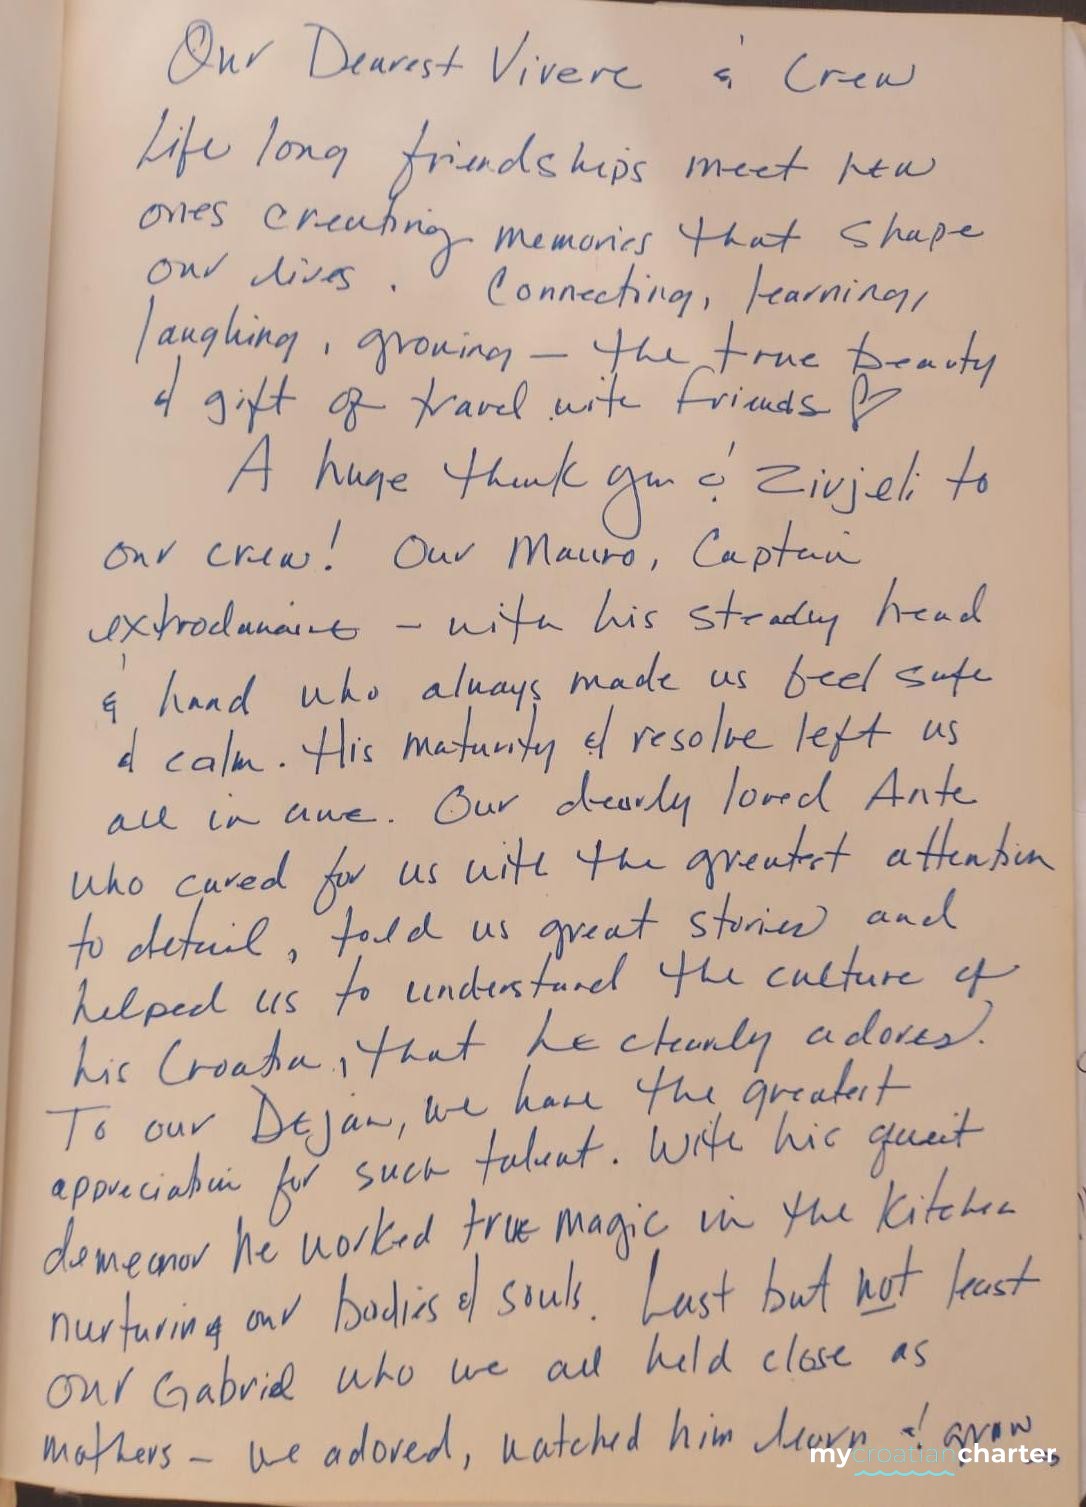 Our Dearest Vivere & Crew
Life long friendships meet new
ones creating memories that shape
our lives. Connecting, learning,
laughing, growing — the true beauty
& gift of travel with friends ♡
A huge thank you & Zivjeli to
our crew! Our Mauro, Captain
extrodanaire - with his steady head
& hand who always made us feel safe
& calm. His maturity & resolve left us
all in awe. Our dearly loved Ante
who cared for us with the greatest attention
to detail, told us great stories and
helped us to understand the culture of
his Croatia, that he clearly adores.
To our Dejan, we have the greatest
appreciation for such talent. With his queit
demeanor he worked true magic in the kitchen
nurturing our bodies & souls. Last but not least
our Gabriel who we all held close as
mothers - we adored, watched him learn & grow
mycroatiancharter